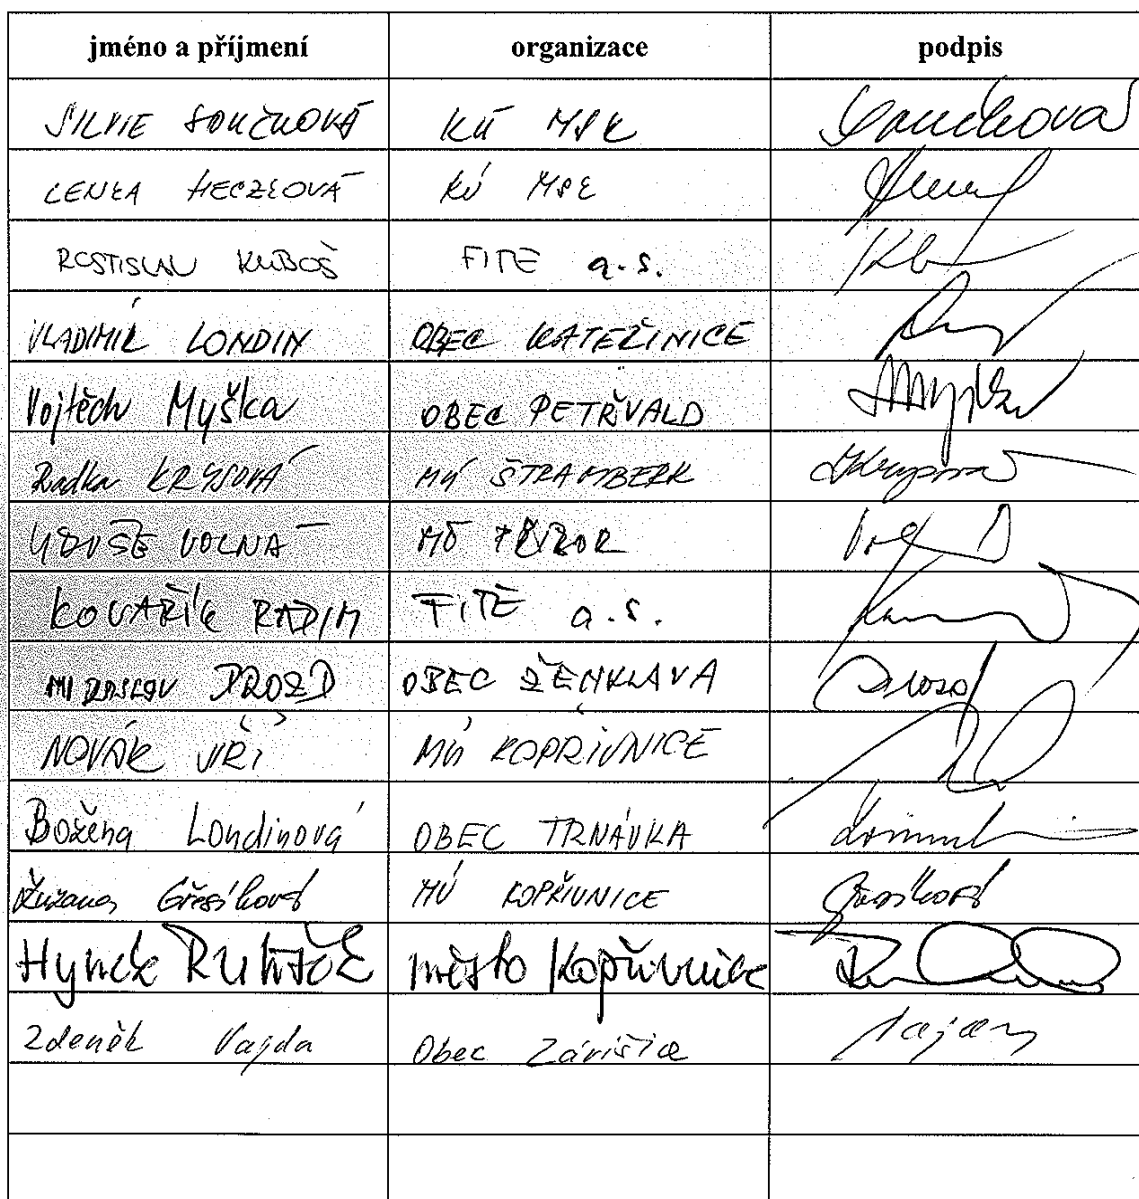 jméno a příjmení organizace podpis
SILVIE SOUČKOVÁ KÚ MSK Součková
LENKA HECZKOVÁ KÚ MSK
ROSTISLAV KUBOŠ FITE a.s.
VLADIMÍR LONDIN OBEC KATEŘINICE
Vojtěch Myška OBEC PETŘVALD Myška
Radka KRYSOVÁ MÚ ŠTRAMBERK
VOLNÁ MÚ PŘÍBOR
KOVAŘÍK RADIM FITE a.s.
MIROSLAV DROZD OBEC ŽENKLAVA Drozd
NOVÁK JIŘÍ MÚ KOPŘIVNICE
Božena Londinová OBEC TRNÁVKA
Zuzana Gřesíková MÚ KOPŘIVNICE Gřesíková
Hynek město Kopřivnice
Zdeněk Vajda Obec Závišice Vajda